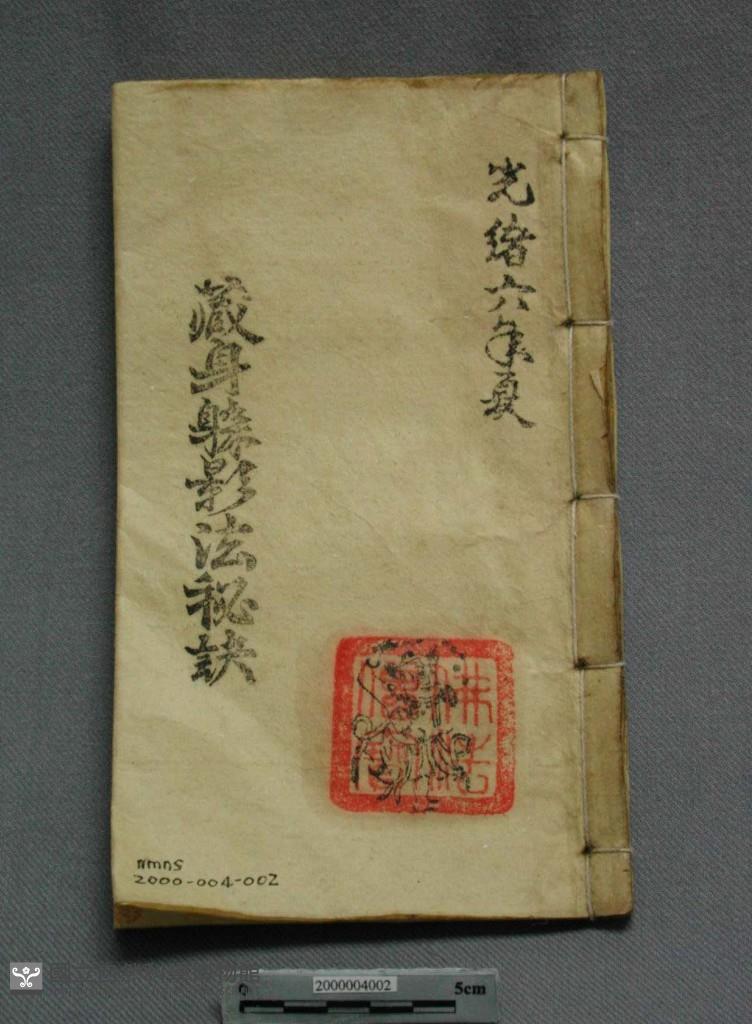 光緒六年夏
藏身躲影法秘訣
NMNS
2000-004-002
2000004002
0
5cm